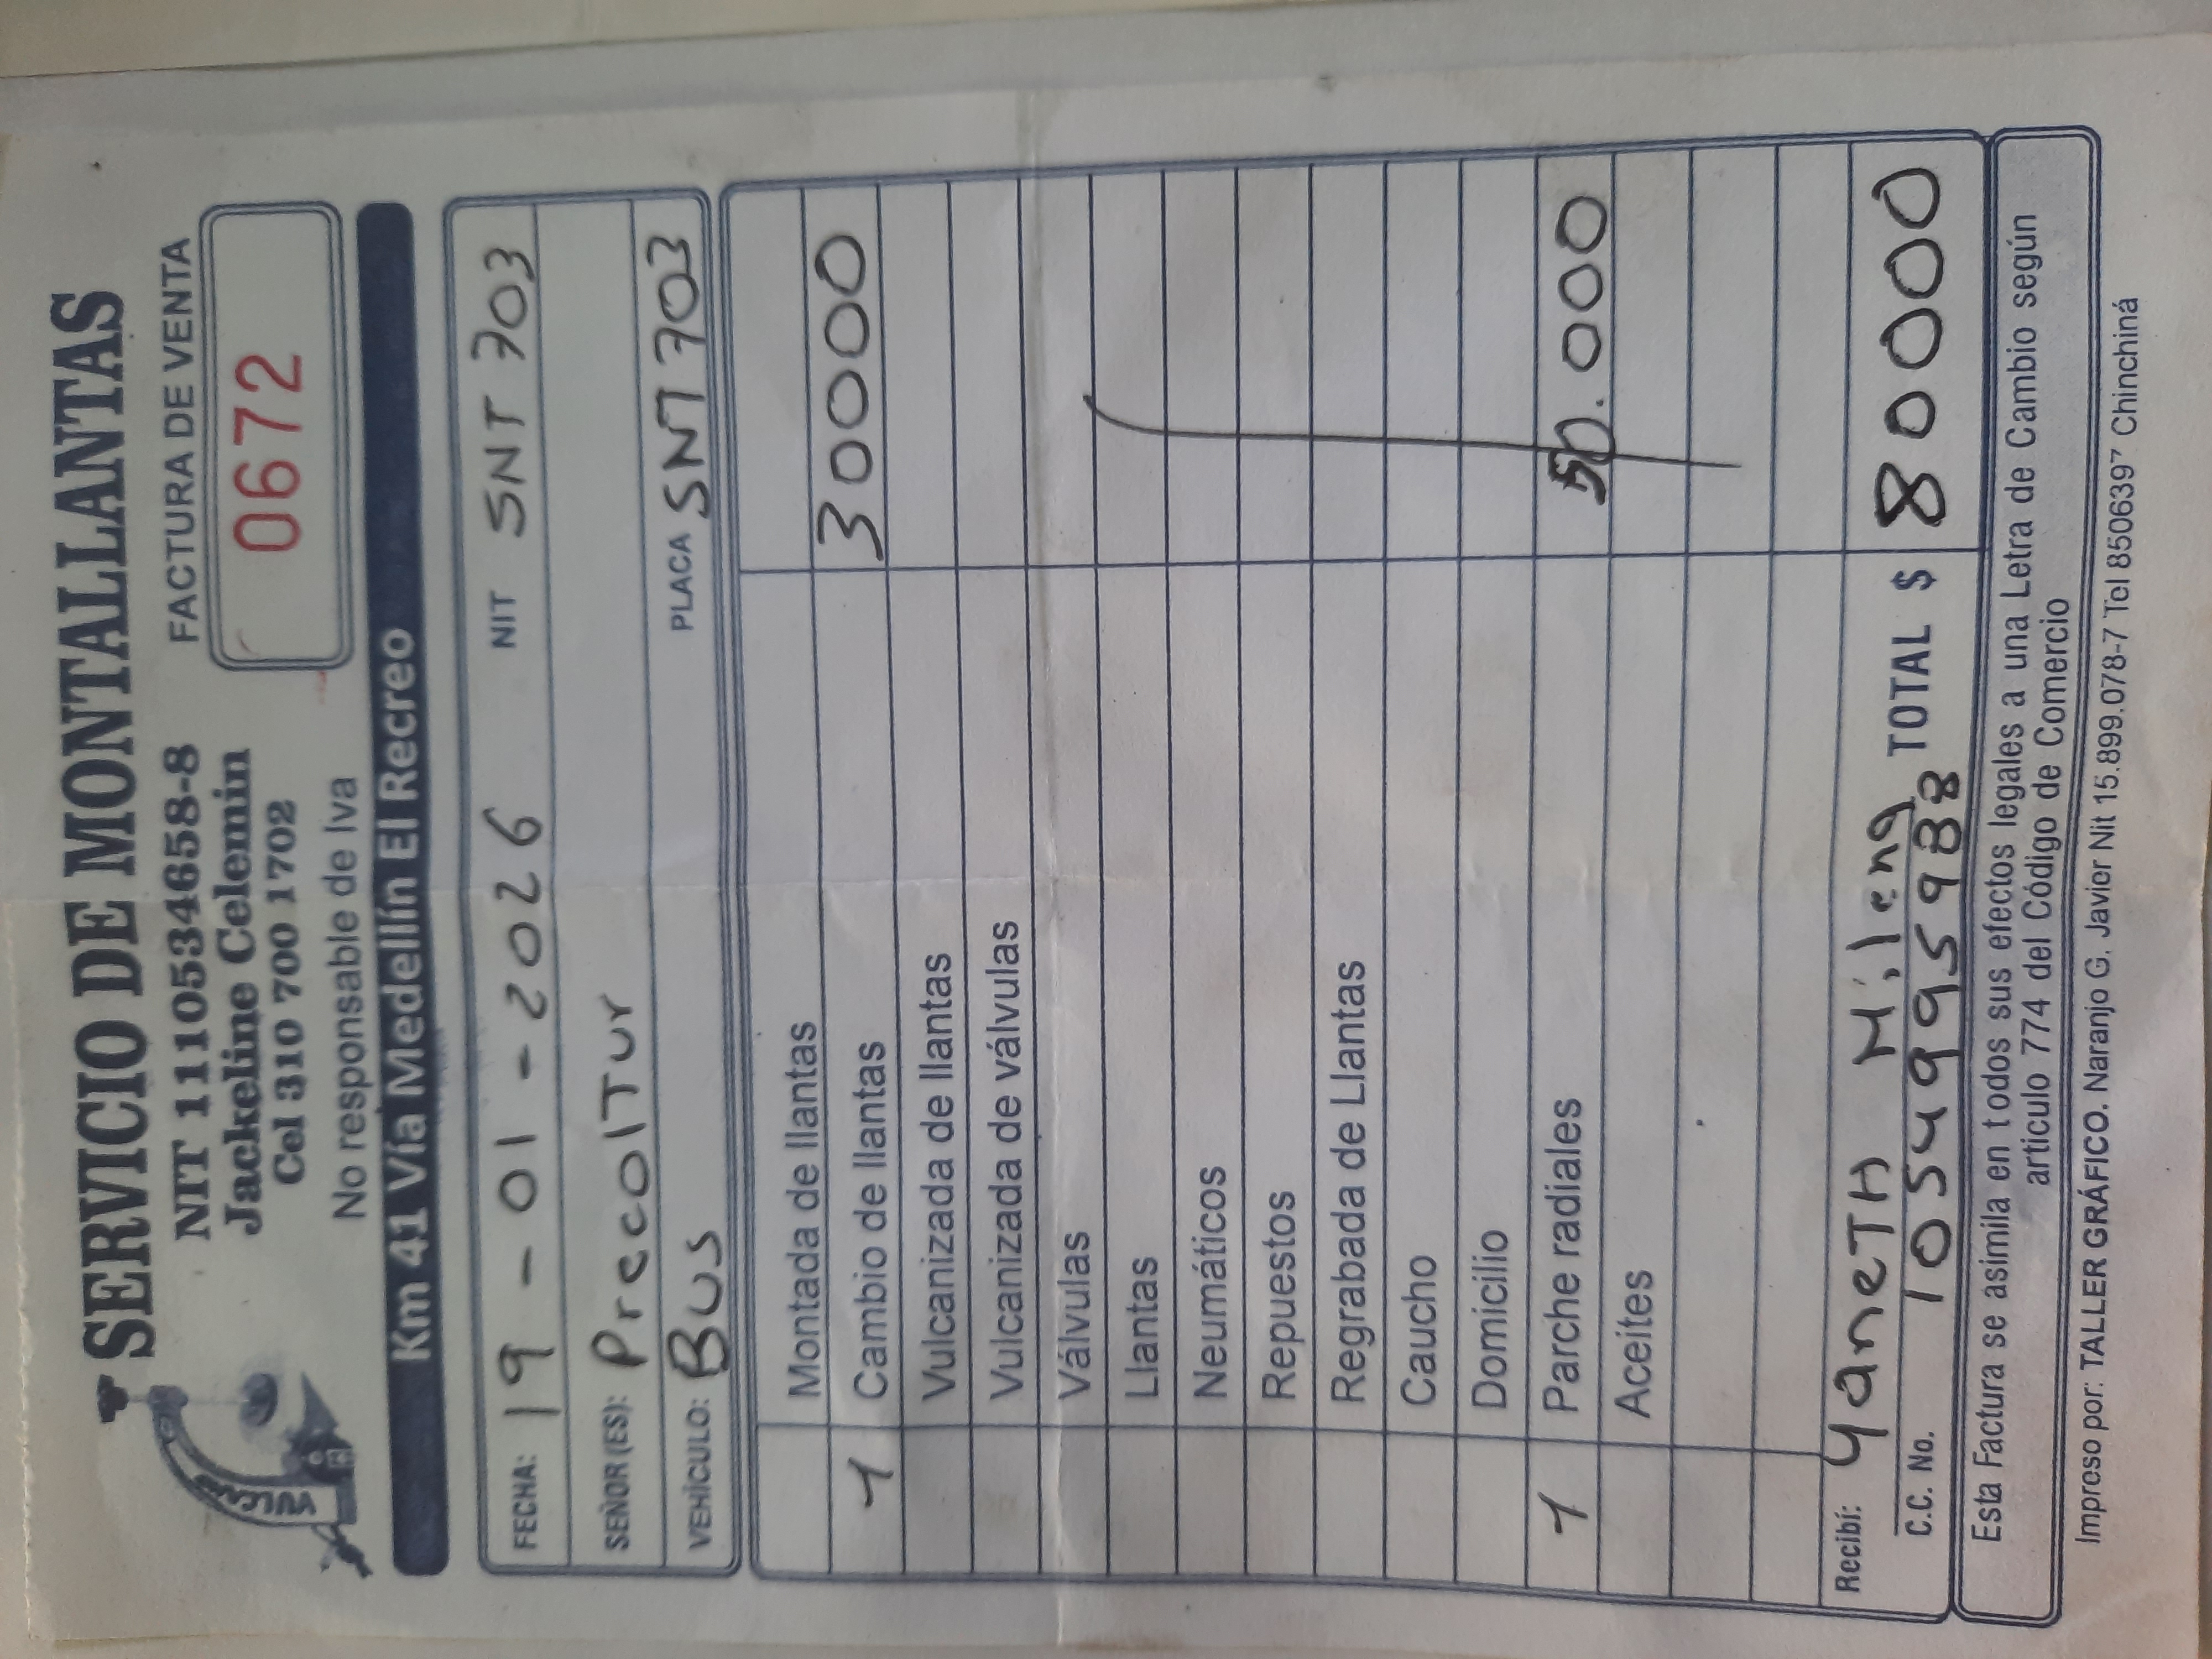 SERVICIO DE MONTALLANTAS
NIT 1110534658-8
Jackeline Celemin
Cel 310 700 1702
No responsable de Iva
FACTURA DE VENTA
0672
Km 41 Vía Medellín El Recreo
FECHA: 19-01-2026 NIT SNT 703
SEÑOR(ES): PrecolTur
VEHÍCULO: Bus PLACA SNT 703
Montada de llantas
1 Cambio de llantas 30000
Vulcanizada de llantas
Vulcanizada de válvulas
Válvulas
Llantas
Neumáticos
Repuestos
Regrabada de Llantas
Caucho
Domicilio
1 Parche radiales 50.000
Aceites
Recibí: YaneTH Milena
C.C. No. 1054995988 TOTAL $ 80000
Esta Factura se asimila en todos sus efectos legales a una Letra de Cambio según
artículo 774 del Código de Comercio
Impreso por: TALLER GRÁFICO. Naranjo G. Javier Nit 15.899.078-7 Tel 8506397 Chinchiná